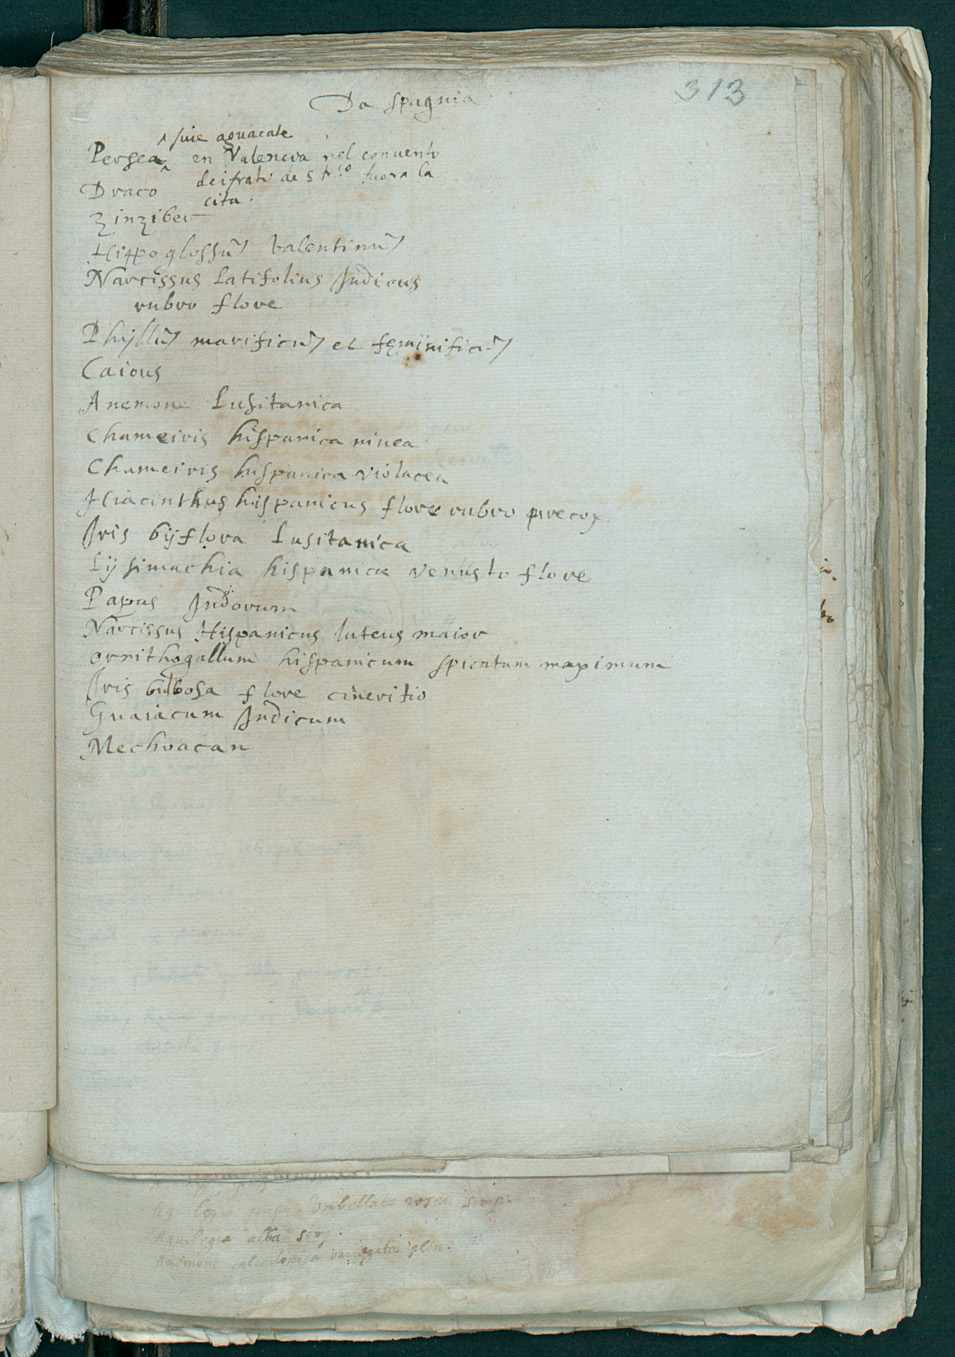 313
Da Spagnia
siue aguacate
Persea^ en Valencia nel conuento
Draco deifrati de S
fuora la
cita.
Zinziber
Hippoglossũ Valentinũ
Narcissus Latifolius Indicus
rubro flore
Phyllũ marificũ et feminificũ
Caious
Anemone Lusitanica
Chameiris hispanica niuea
Chameiris hispanica violacea
Hiacinthus hispanicus flore rubro precox
Iris byflora Lusitanica
Lysimachia hispanica venusto flore
Papas Indorum
Narcissus Hispanicus luteus maior
Ornithogallum hispanicum spicatum maximum
Iris bulbosa flore cineritio
Guaiacum Indicum
Mechoacan
umbellata rosea simp.
Aquilegia alba simp
Anemone calcedonica variegata plen.